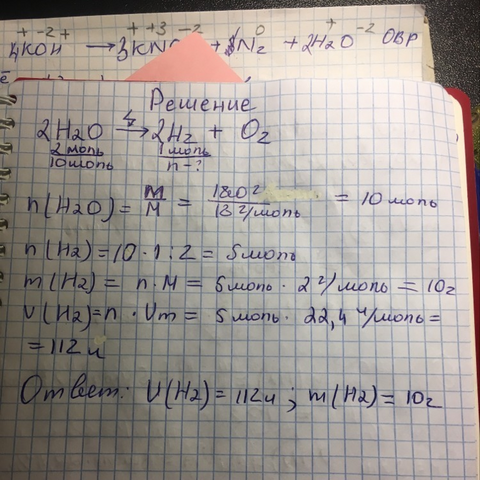 + -2 + + +3 -2 0 + -2
4KOH → 3KNO + N₂ + 2H₂O ОВР
Решение
2H₂O → 2H₂ + O₂
2 моль 1 моль
10 моль n - ?
n(H₂O) = M/M = 180 г / 18 г/моль = 10 моль
n(H₂) = 10 · 1 : 2 = 5 моль
m(H₂) = n · M = 5 моль · 2 г/моль = 10 г
V(H₂) = n · Vm = 5 моль · 22,4 л/моль =
= 112 л
Ответ: V(H₂) = 112 л ; m(H₂) = 10 г